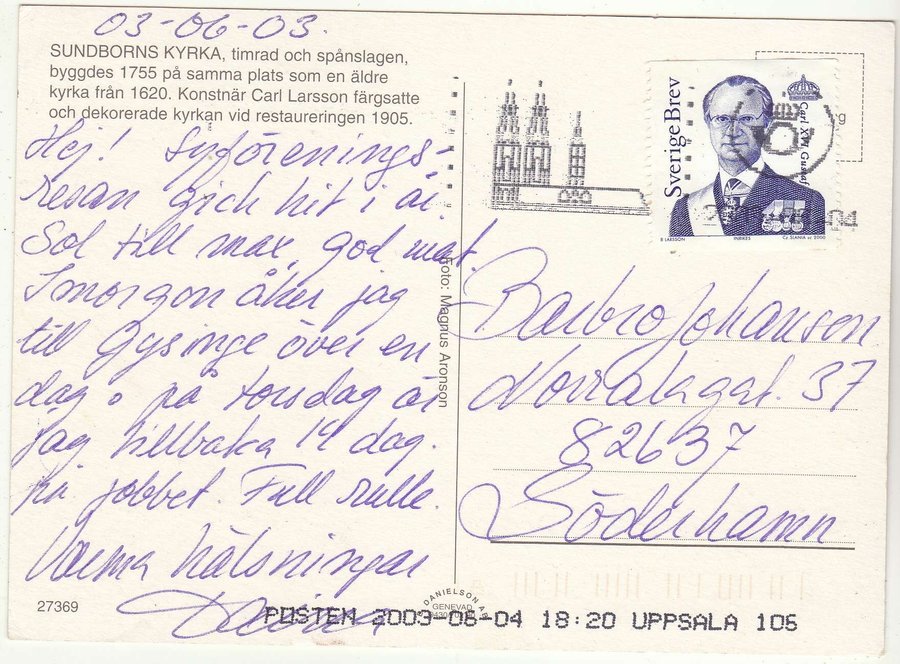 03-06-03.
SUNDBORNS KYRKA, timrad och spånslagen,
byggdes 1755 på samma plats som en äldre
kyrka från 1620. Konstnär Carl Larsson färgsatte
och dekorerade kyrkan vid restaureringen 1905.
Hej! Syförenings-
resan gick hit i år.
Sol till max, god mat.
Imorgon åker jag
till Gysinge över en
dag o på torsdag är
jag tillbaka 14 dag.
på jobbet. Full rulle.
Varma hälsningar
27369
Foto: Magnus Aronson
DANIELSON
GENEVAD
Sverige Brev
Carl XVI Gustaf
B LARSSON INRIKES CZ SLANIA sc 2000
Barbro Johansson
Norralagat. 37
82637
Söderhamn
POSTEN 2003-06-04 18:20 UPPSALA 106